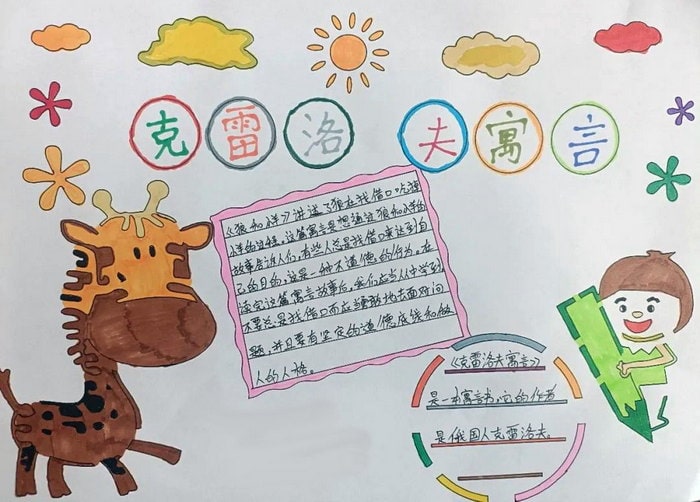 克雷洛夫寓言
《狼和羊》讲述了狼在找借口吃掉
羊的过程。这篇寓言是想通过狼和羊的
故事告诉人们,有些人总是找借口来达到自
己的目的,这是一种不道德的行为。在
读完这篇寓言故事后,我们应当从中学到
不要总是找借口而应当勇敢地去面对问
题,并且要有坚定的道德底线和做
人的人格。
《克雷洛夫寓言》
是一本寓言书,它的作者
是俄国人克雷洛夫。